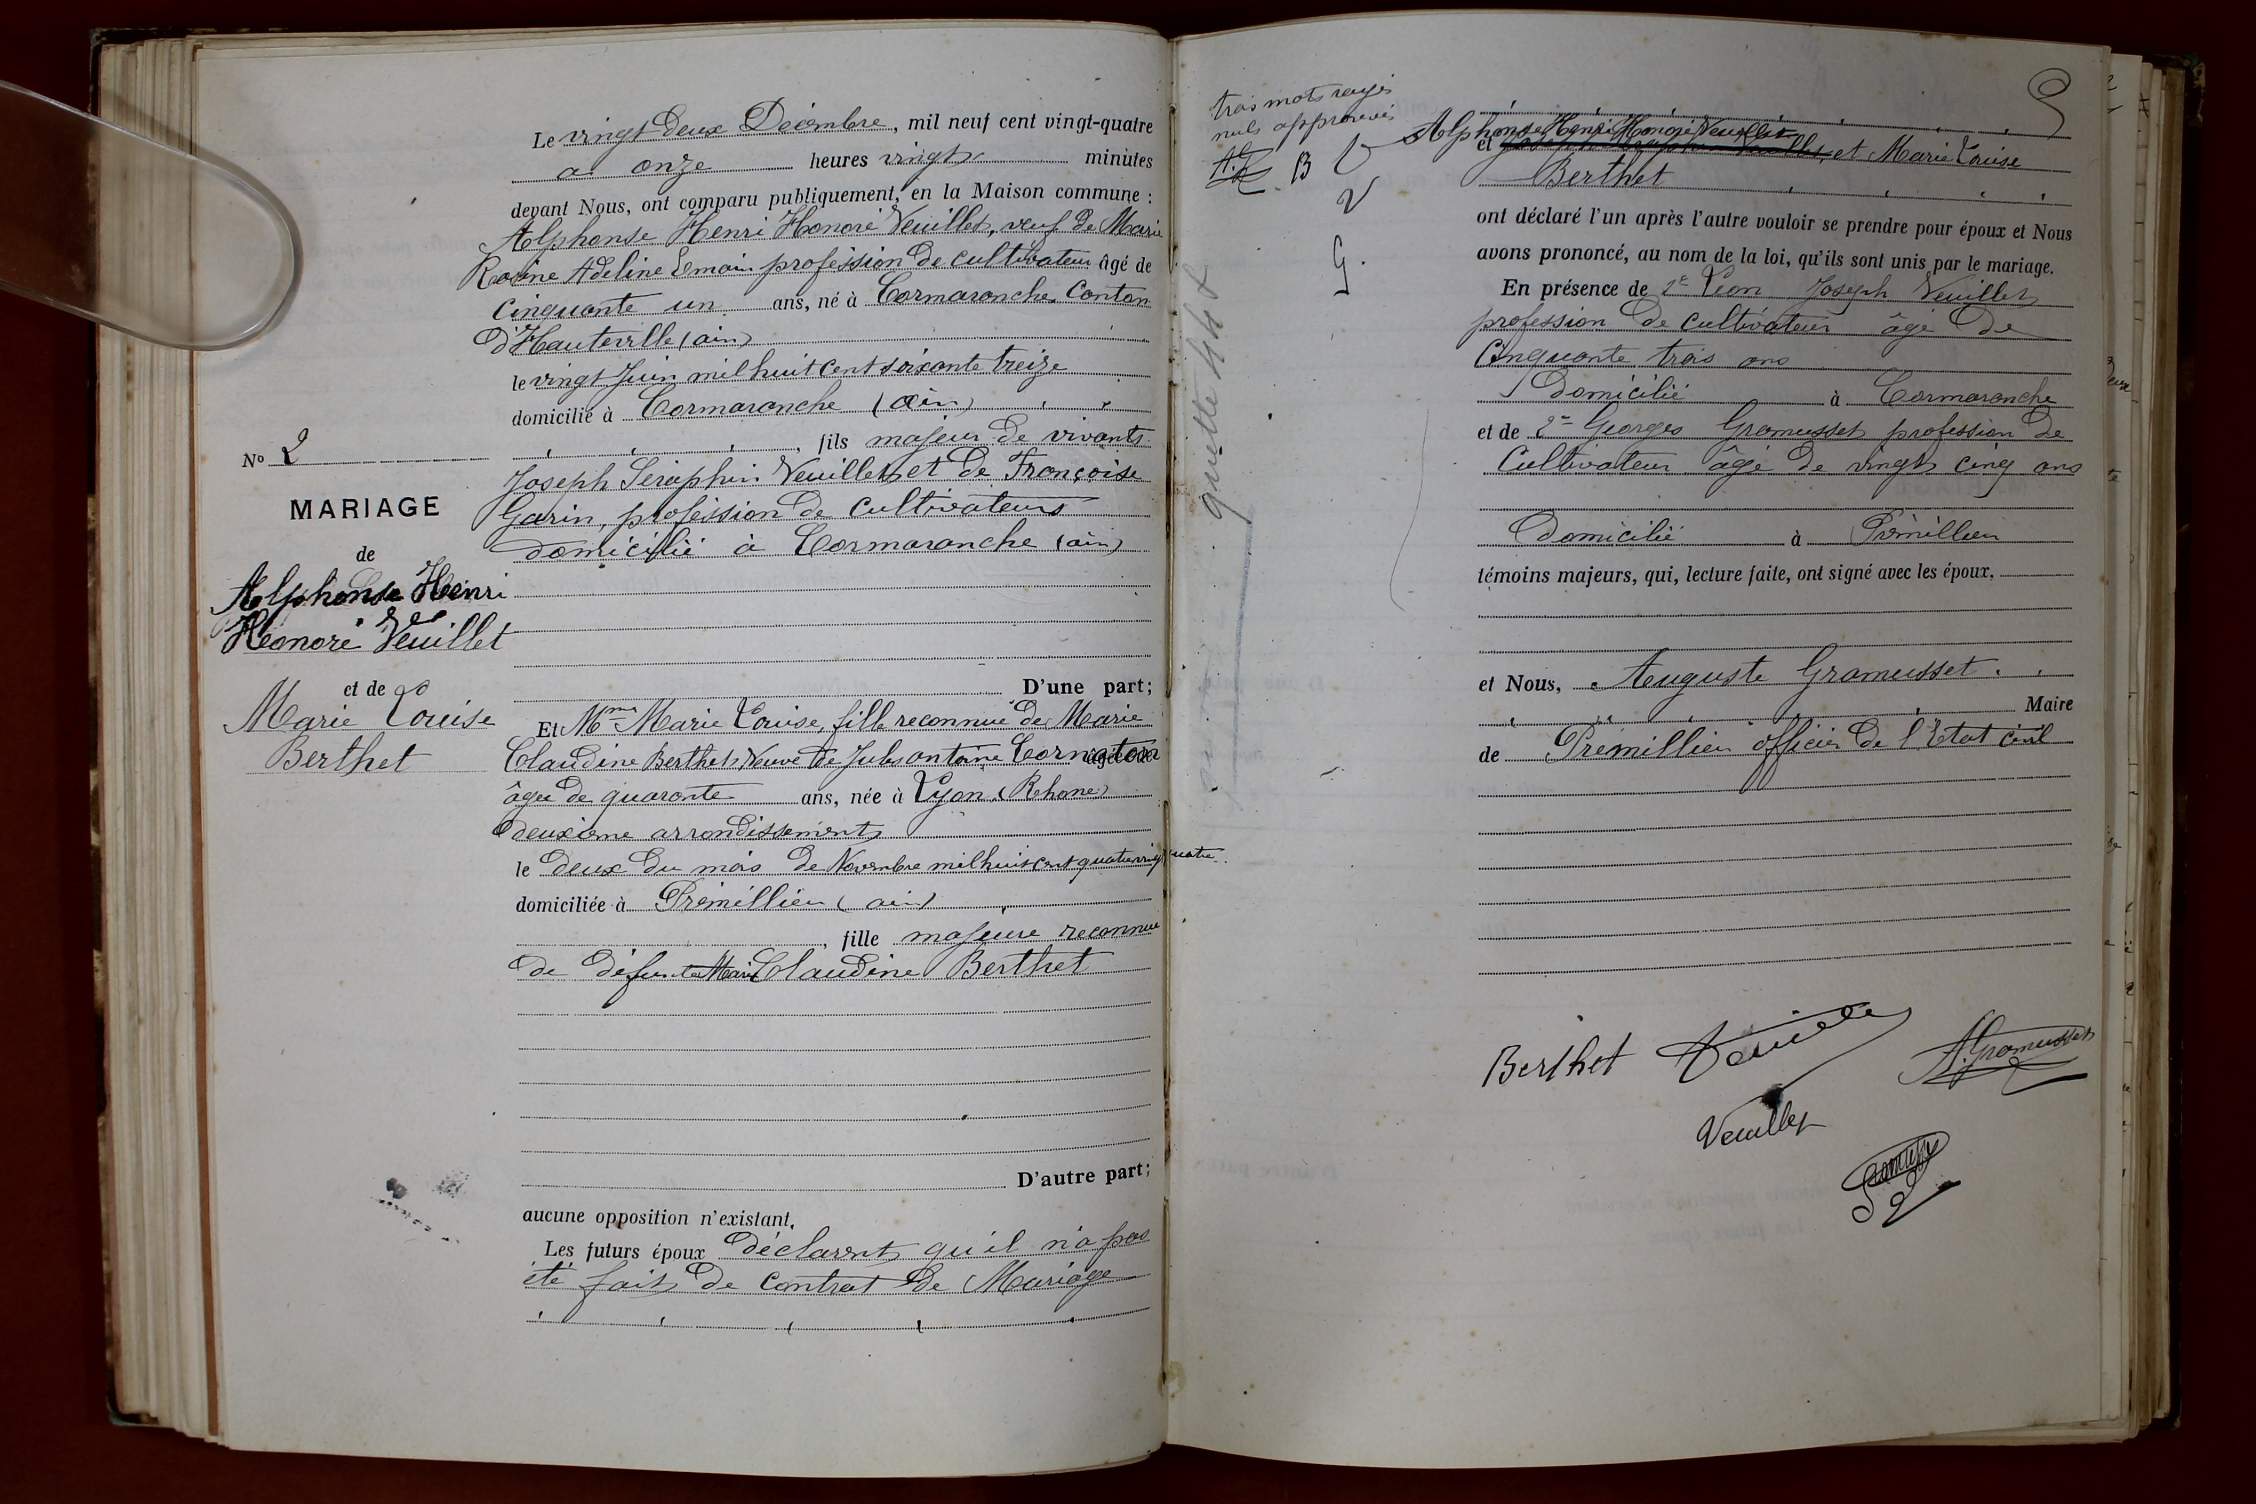 Le vingt deux Décembre, mil neuf cent vingt-quatre
a onze heures vingt minutes
devant Nous, ont comparu publiquement, en la Maison commune :
Alphonse Henri Honoré Veuillet, veuf de Marie
Rosine Adeline Emain profession de cultivateur âgé de
Cinquante un ans, né à Cormaranche Canton
d'Hauteville (ain)
le vingt Juin mil huit cent soixante treize
domicilié à Cormaranche (ain)
fils majeur de vivants
Joseph Séraphin Veuillet et de Françoise
Garin, profession de Cultivateurs
domicilié à Cormaranche (ain)
No 2
MARIAGE
de
Alphonse Henri
Honoré Veuillet
et de
Marie Louise
Berthet
D'une part;
Et Mme Marie Louise, fille reconnue de Marie
Claudine Berthet, Veuve de Jules antoine Cornaton
âgée de quarante ans, née à Lyon (Rhone)
deuxième arrondissement
le deux du mois de Novembre mil huit cent quatre vingt quatre
domiciliée à Prémillieu (ain)
, fille majeure reconnue
de défunte Marie Claudine Berthet
D'autre part;
aucune opposition n'existant.
Les futurs époux déclarent qu'il n'a pas
été fait de contrat de Mariage
trois mots rayés
nuls approuvés
B V
V
G.
9
Alphonse Henri Honoré Veuillet
et Joseph Séraphin Veuillet et Marie Louise
Berthet
ont déclaré l'un après l'autre vouloir se prendre pour époux et Nous
avons prononcé, au nom de la loi, qu'ils sont unis par le mariage.
En présence de 1e Léon Joseph Veuillet
profession de cultivateur âgé de
Cinquante trois ans
Domicilié à Cormaranche
et de 2e Georges Gramusset profession de
Cultivateur âgé de vingt cinq ans
Domicilié à Prémillieu
témoins majeurs, qui, lecture faite, ont signé avec les époux.
et Nous, Auguste Gramusset
Maire
de Prémillieu officier de l'Etat civil
Berthet Veuillet A. Gramusset
Veuillet